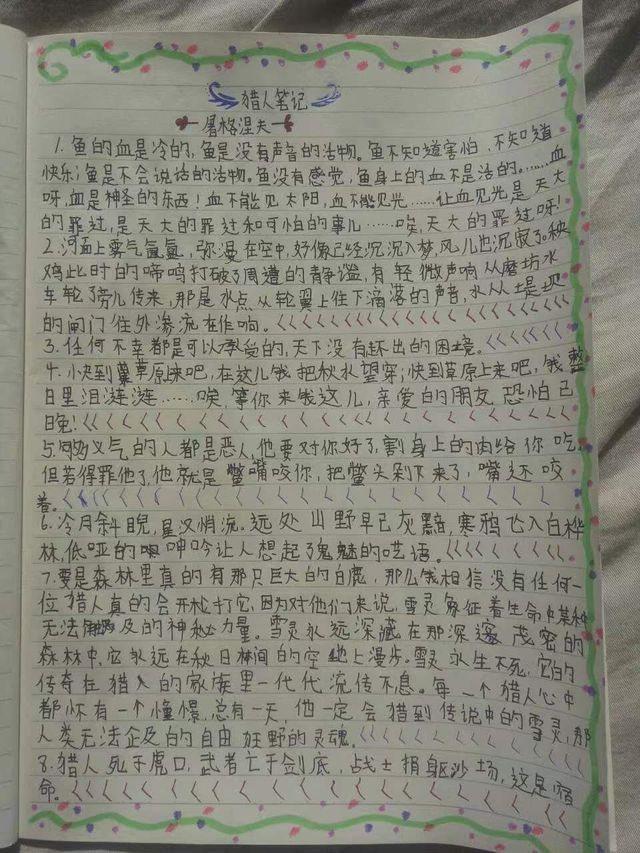 猎人笔记
屠格涅夫
1. 鱼的血是冷的,鱼是没有声音的活物。鱼不知道害怕,不知道
快乐;鱼是不会说话的活物。鱼没有感觉,鱼身上的血不是活的。……血
呀,血是神圣的东西!血不能见太阳,血不能见光……让血见光是天大
的罪过,是天大的罪过和可怕的事儿……唉,天大的罪过呀!
2. 河面上雾气氤氲,弥漫在空中,好像已经沉沉入梦,风儿也沉寂了。秧
鸡此时的啼鸣打破了周遭的静谧,有轻微声响从磨坊水
车轮子旁儿传来,那是水点从轮翼上往下滴落的声音,水从堤坝
的闸门往外渗流在作响。
3. 任何不幸都是可以承受的,天下没有赶不出的困境。
4. 快到草原上来吧,在这儿俄把秋水望穿;快到草原上来吧,俄整
日里泪涟涟……唉,等你来俄这儿,亲爱的朋友,恐怕已
晚!
5. 义气的人都是恶人,他要对你好了,割身上的肉给你吃,
但若得罪他了,他就是鳖嘴咬你,把鳖头剁下来了,嘴还咬
着。
6. 冷月斜睨,星汉悄流。远处山野早已灰黯,寒鸦飞入白桦
林,低哑的呻吟让人想起了鬼魅的呓语。
7. 要是森林里真的有那只巨大的白鹿,那么俄相信没有任何一
位猎人真的会开枪打它,因为对他们来说,雪灵象征着生命中某种
无法触及的神秘力量。雪灵永远深藏在那深邃茂密的
森林中,它永远在秋日林间的空地上漫步。雪灵永生不死,它的
传奇在猎人的家族里一代代流传不息。每一个猎人心中
都怀有一个憧憬,总有一天,他一定会猎到传说中的雪灵,那
人类无法企及的自由狂野的灵魂。
8. 猎人死于虎口,武者亡于剑底,战士捐躯沙场,这是宿
命。